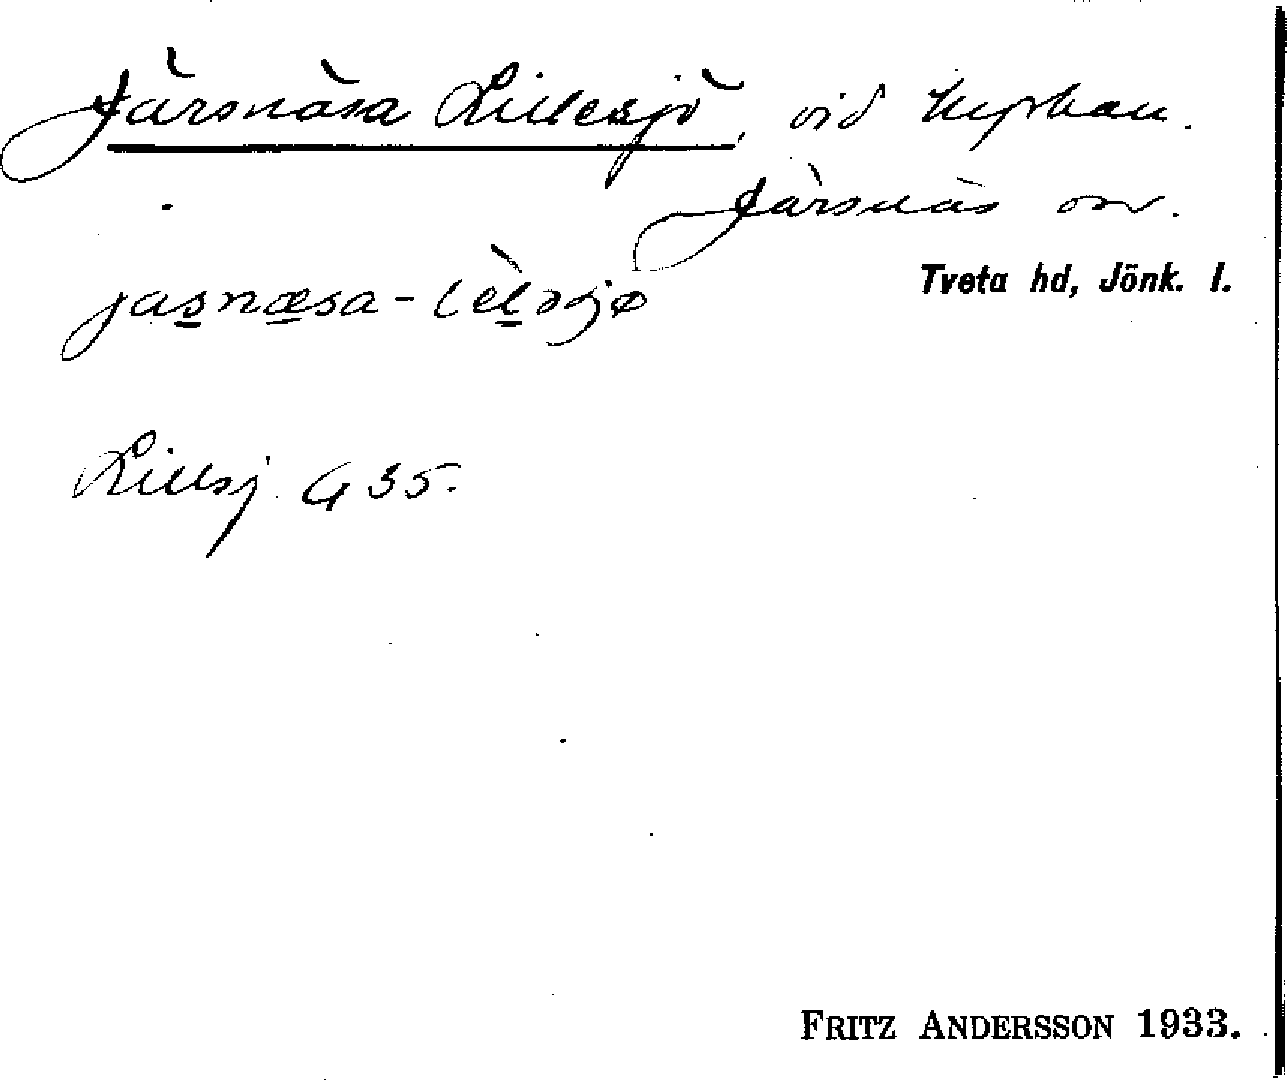 Järsnäsa Lillesjö, vid
Järsnäs sn.
Tveta hd, Jönk. l.
jasnæsa-
Lillsj. G 35.
FRITZ ANDERSSON 1933.